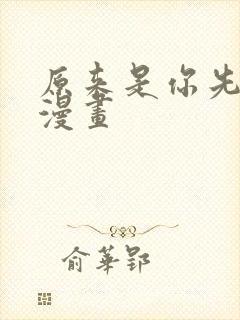 原来是你先
漫畫
俞華郢